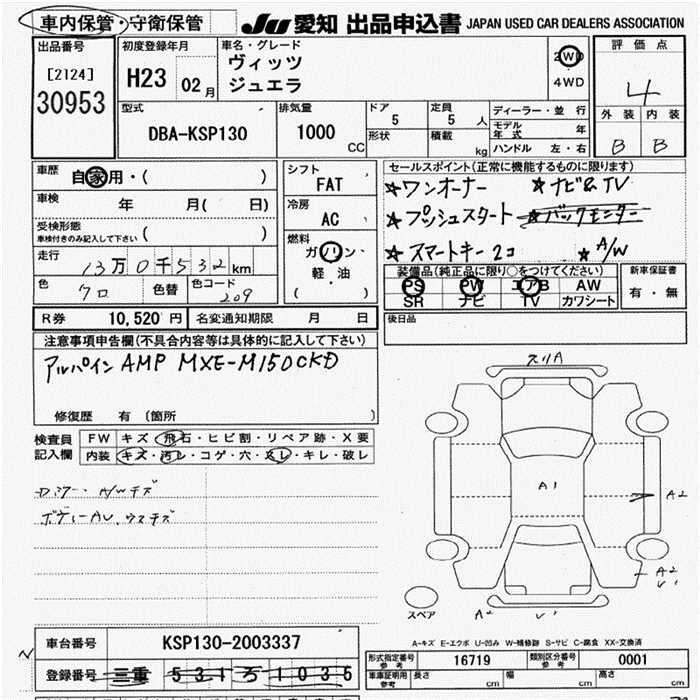 車内保管・守衛保管
JU 愛知 出品申込書 JAPAN USED CAR DEALERS ASSOCIATION
出品番号
[2124]
30953
初度登録年月
H23 02月
車名・グレード
ヴィッツ
ジュエラ
2WD
4WD
評価点
4
外装 内装
B B
型式
DBA-KSP130
排気量
1000 CC
ドア
5
形状
定員
5 人
積載 kg
ディーラー・並行
モデル年式 年
ハンドル 左・右
車歴
自家用・( )
車検 年 月( 日)
受検形態
車検付きのみ記入して下さい ( )
走行
13万0千532km
色
クロ
色替
色コード
209
シフト
FAT
冷房
AC
燃料
ガソリン・
軽・油
( )
セールスポイント(正常に機能するものに限ります)
★ワンオーナー ★ナビ&TV
★プッシュスタート ★バックモニター
★スマートキー2コ ★A/W
装備品(純正品に限り○をつけてください)
PS PW エアB AW
SR ナビ TV カワシート
新車保証書
有・無
R券 10,520円 名変通知期限 月 日
後日品
注意事項申告欄(不具合内容等は具体的に記入して下さい)
アルパイン AMP MXE-M150CKD
修復歴 有 〔箇所 〕
検査員
記入欄
FW キズ・飛石・ヒビ割・リペア跡・X要
内装 キズ・汚レ・コゲ・穴・スレ・キレ・破レ
A/Wキズ
ボディーAU、ウスキズ
スリA
A1
A2
A2
U'
スペア
A2 U'
A-キズ E-エクボ U-凹み W-補修跡 S-サビ C-腐食 XX-交換済
車台番号 KSP130-2003337
登録番号 三重 531 ろ 1035
形式指定番号
参考
16719
類別区分番号
参考
0001
車庫証明用
参考
長さ cm 幅 cm 高さ cm